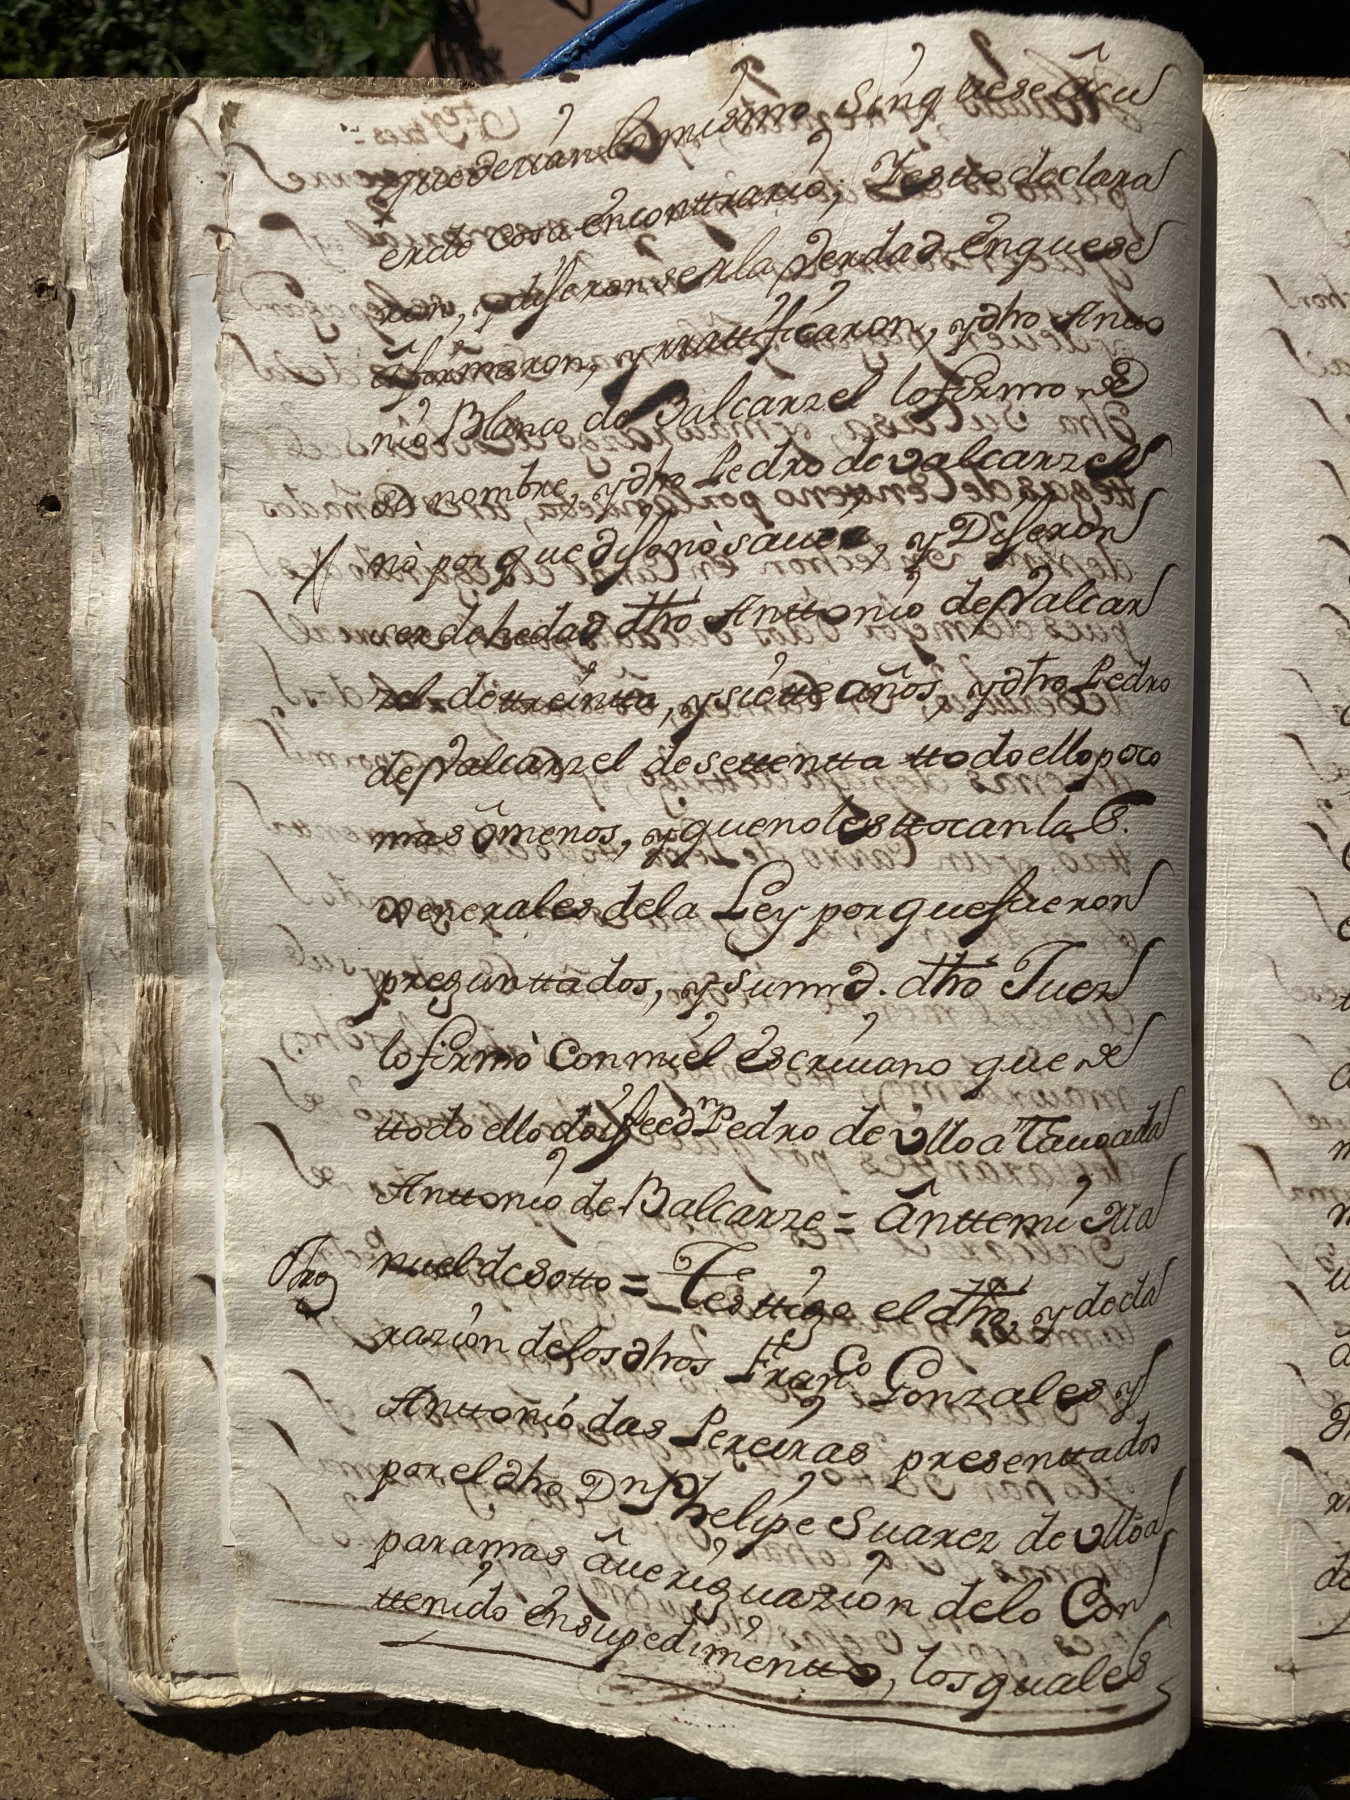 que verán lo mismo sinq uese âcu
erdo cosa encontrario; Y esto declara
ron, y dijeron ser la Verdad enquese
âfirmaron, y rrattificaron, y dho Antto
nío Blanco de Balcarzel lofirmo de
su nombre, y dho Pedro de valcarzel
nò porque dijo nò saver, y Dijeron
ser de hedad dho Anttonío de Valcar
zel de ttreíntta, y síette años, y dho Pedro
de Valcarzel de settentta ttodo ello poco
mas ô menos, y que no les ttocan la G.
Xenerales de la Ley por que fueron
preguntados, y su md. dho Juez
lo firmò Con mí el escrívano que de
ttodo ello doi fee dn Pedro de Ulloa Tavoada
Anttonío de Balcarze = ântte mí Ma
nuel de Sotto = Testtigo el dho, y decla
razíon de los dhos Franco Gonzales y
Anttonío das Pereiras presenttados
por el dho Dn Phelipe Suarez de Ulloa
para mas âveriguazíon de lo Con
ttenido en su pedímentto, los quales